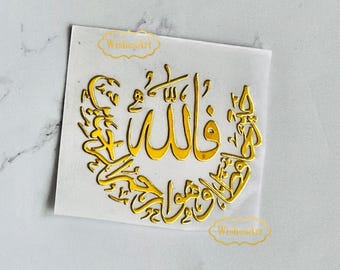 WishesArt
فَاللّٰهُ
خير حافظا وهو ارحم الراحمين
WishesArt